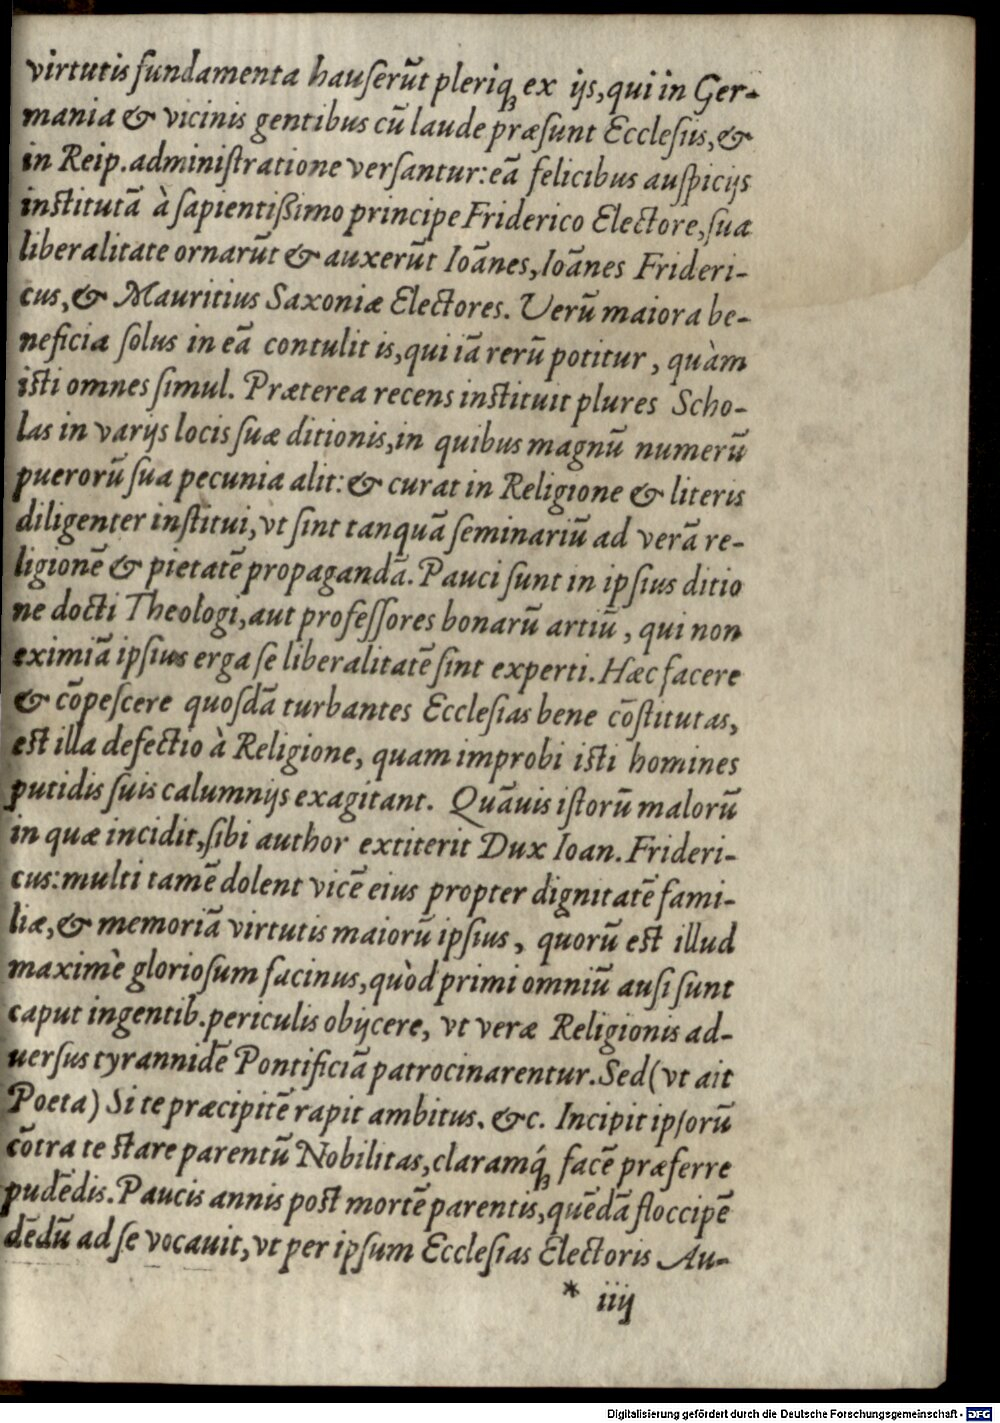 virtutis fundamenta hauserūt pleriq́ꝫ ex ijs, qui in Ger-
mania & vicinis gentibus cū laude præsunt Ecclesiis, &
in Reip. administratione versantur: eā felicibus auspicijs
institutā à sapientißimo principe Friderico Electore, sua
liberalitate ornarūt & auxerūt Ioānes, Ioānes Frideri-
cus, & Mauritius Saxoniæ Electores. Verū maiora be-
neficia solus in eā contulit is, qui iā rerū potitur, quàm
isti omnes simul. Præterea recens instituit plures Scho-
las in varijs locis suæ ditionis, in quibus magnū numerū
puerorū sua pecunia alit: & curat in Religione & literis
diligenter institui, vt sint tanquā seminariū ad verā re-
ligionē & pietatē propagandā. Pauci sunt in ipsius ditio
ne docti Theologi, aut professores bonarū artiū, qui non
eximiā ipsius erga se liberalitatē sint experti. Hæc facere
& cōpescere quosdā turbantes Ecclesias bene cōstitutas,
est illa defectio à Religione, quam improbi isti homines
putidis suis calumnijs exagitant. Quāuis istorū malorū
in quæ incidit, sibi author extiterit Dux Ioan. Frideri-
cus: multi tamē dolent vicē eius propter dignitatē fami-
liæ, & memoriā virtutis maiorū ipsius, quorū est illud
maximè gloriosum facinus, quòd primi omniū ausi sunt
caput ingentib. periculis obijcere, vt veræ Religionis ad-
uersus tyrannidē Pontificiā patrocinarentur. Sed (vt ait
Poeta) Si te præcipitē rapit ambitus. &c. Incipit ipsorū
cōtra te stare parentū Nobilitas, claramq́ꝫ facē præferre
pudēdis. Paucis annis post mortē parentis, quēdā floccipē
dēdū ad se vocauit, vt per ipsum Ecclesias Electoris Au-
* iiij
Digitalisierung gefördert durch die Deutsche Forschungsgemeinschaft - DFG